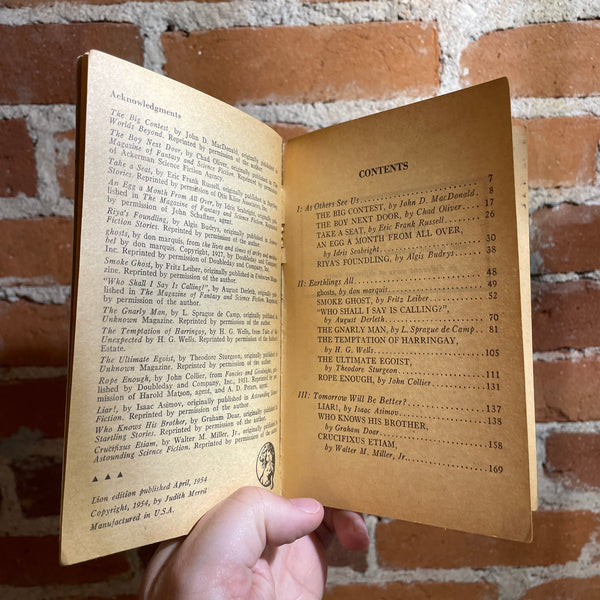 Acknowledgments
The Big Contest, by John D. MacDonald, originally published in
Worlds Beyond. Reprinted by permission of the author.
The Boy Next Door, by Chad Oliver, originally published in The
Magazine of Fantasy and Science Fiction. Reprinted by permission
of Ackerman Science Fiction Agency.
Take a Seat, by Eric Frank Russell, originally published in Startling
Stories. Reprinted by permission of Otis Kline Associates.
An Egg a Month From All Over, by Idris Seabright, originally published
in The Magazine of Fantasy and Science Fiction. Reprinted
by permission of
Riya's Foundling, by Algis Budrys, originally published in
Science Fiction Stories. Reprinted by permission of the author.
ghosts, by don marquis, from the lives and times of archy and mehitabel
by don marquis. Copyright, 1927, by Doubleday and Company, Inc.
Reprinted by permission of Doubleday and Company, Inc.
Smoke Ghost, by Fritz Leiber, originally published in
Reprinted by permission of the author.
"Who Shall I Say Is Calling?" by August Derleth, originally published
in The Magazine of Fantasy and Science Fiction. Reprinted
by permission of the author.
The Gnarly Man, by L. Sprague de Camp, originally published in
Unknown Magazine. Reprinted by permission of the author.
The Temptation of Harringay, by H. G. Wells, from
Unexpected by H. G. Wells. Reprinted by permission of the
Estate.
The Ultimate Egoist, by Theodore Sturgeon, originally published in
Unknown Magazine. Reprinted by permission of the author.
Rope Enough, by John Collier, from Fancies and Goodnights, published
by Doubleday and Company, Inc., 1951. Reprinted by permission
of Harold Matson, agent, and A. D. Peters, agent.
Liar!, by Isaac Asimov, originally published in Astounding Science
Fiction. Reprinted by permission of the author.
Who Knows His Brother, by Graham Doar, originally published in
Startling Stories. Reprinted by permission of the author.
Crucifixus Etiam, by Walter M. Miller, Jr., originally published in
Astounding Science Fiction. Reprinted by permission of the author.
▲ ▲ ▲
Lion edition published April, 1954
Copyright, 1954, by Judith Merril
Manufactured in U.S.A.
CONTENTS
I: As Others See Us 7
THE BIG CONTEST, by John D. MacDonald 8
THE BOY NEXT DOOR, by Chad Oliver 17
TAKE A SEAT, by Eric Frank Russell 26
AN EGG A MONTH FROM ALL OVER,
by Idris Seabright 30
RIYA'S FOUNDLING, by Algis Budrys 38
II: Earthlings All 48
ghosts, by don marquis 49
SMOKE GHOST, by Fritz Leiber 52
"WHO SHALL I SAY IS CALLING?"
by August Derleth 70
THE GNARLY MAN, by L. Sprague de Camp 81
THE TEMPTATION OF HARRINGAY,
by H. G. Wells 105
THE ULTIMATE EGOIST,
by Theodore Sturgeon 111
ROPE ENOUGH, by John Collier 131
III: Tomorrow Will Be Better? 137
LIAR!, by Isaac Asimov 138
WHO KNOWS HIS BROTHER,
by Graham Doar 158
CRUCIFIXUS ETIAM,
by Walter M. Miller, Jr. 169